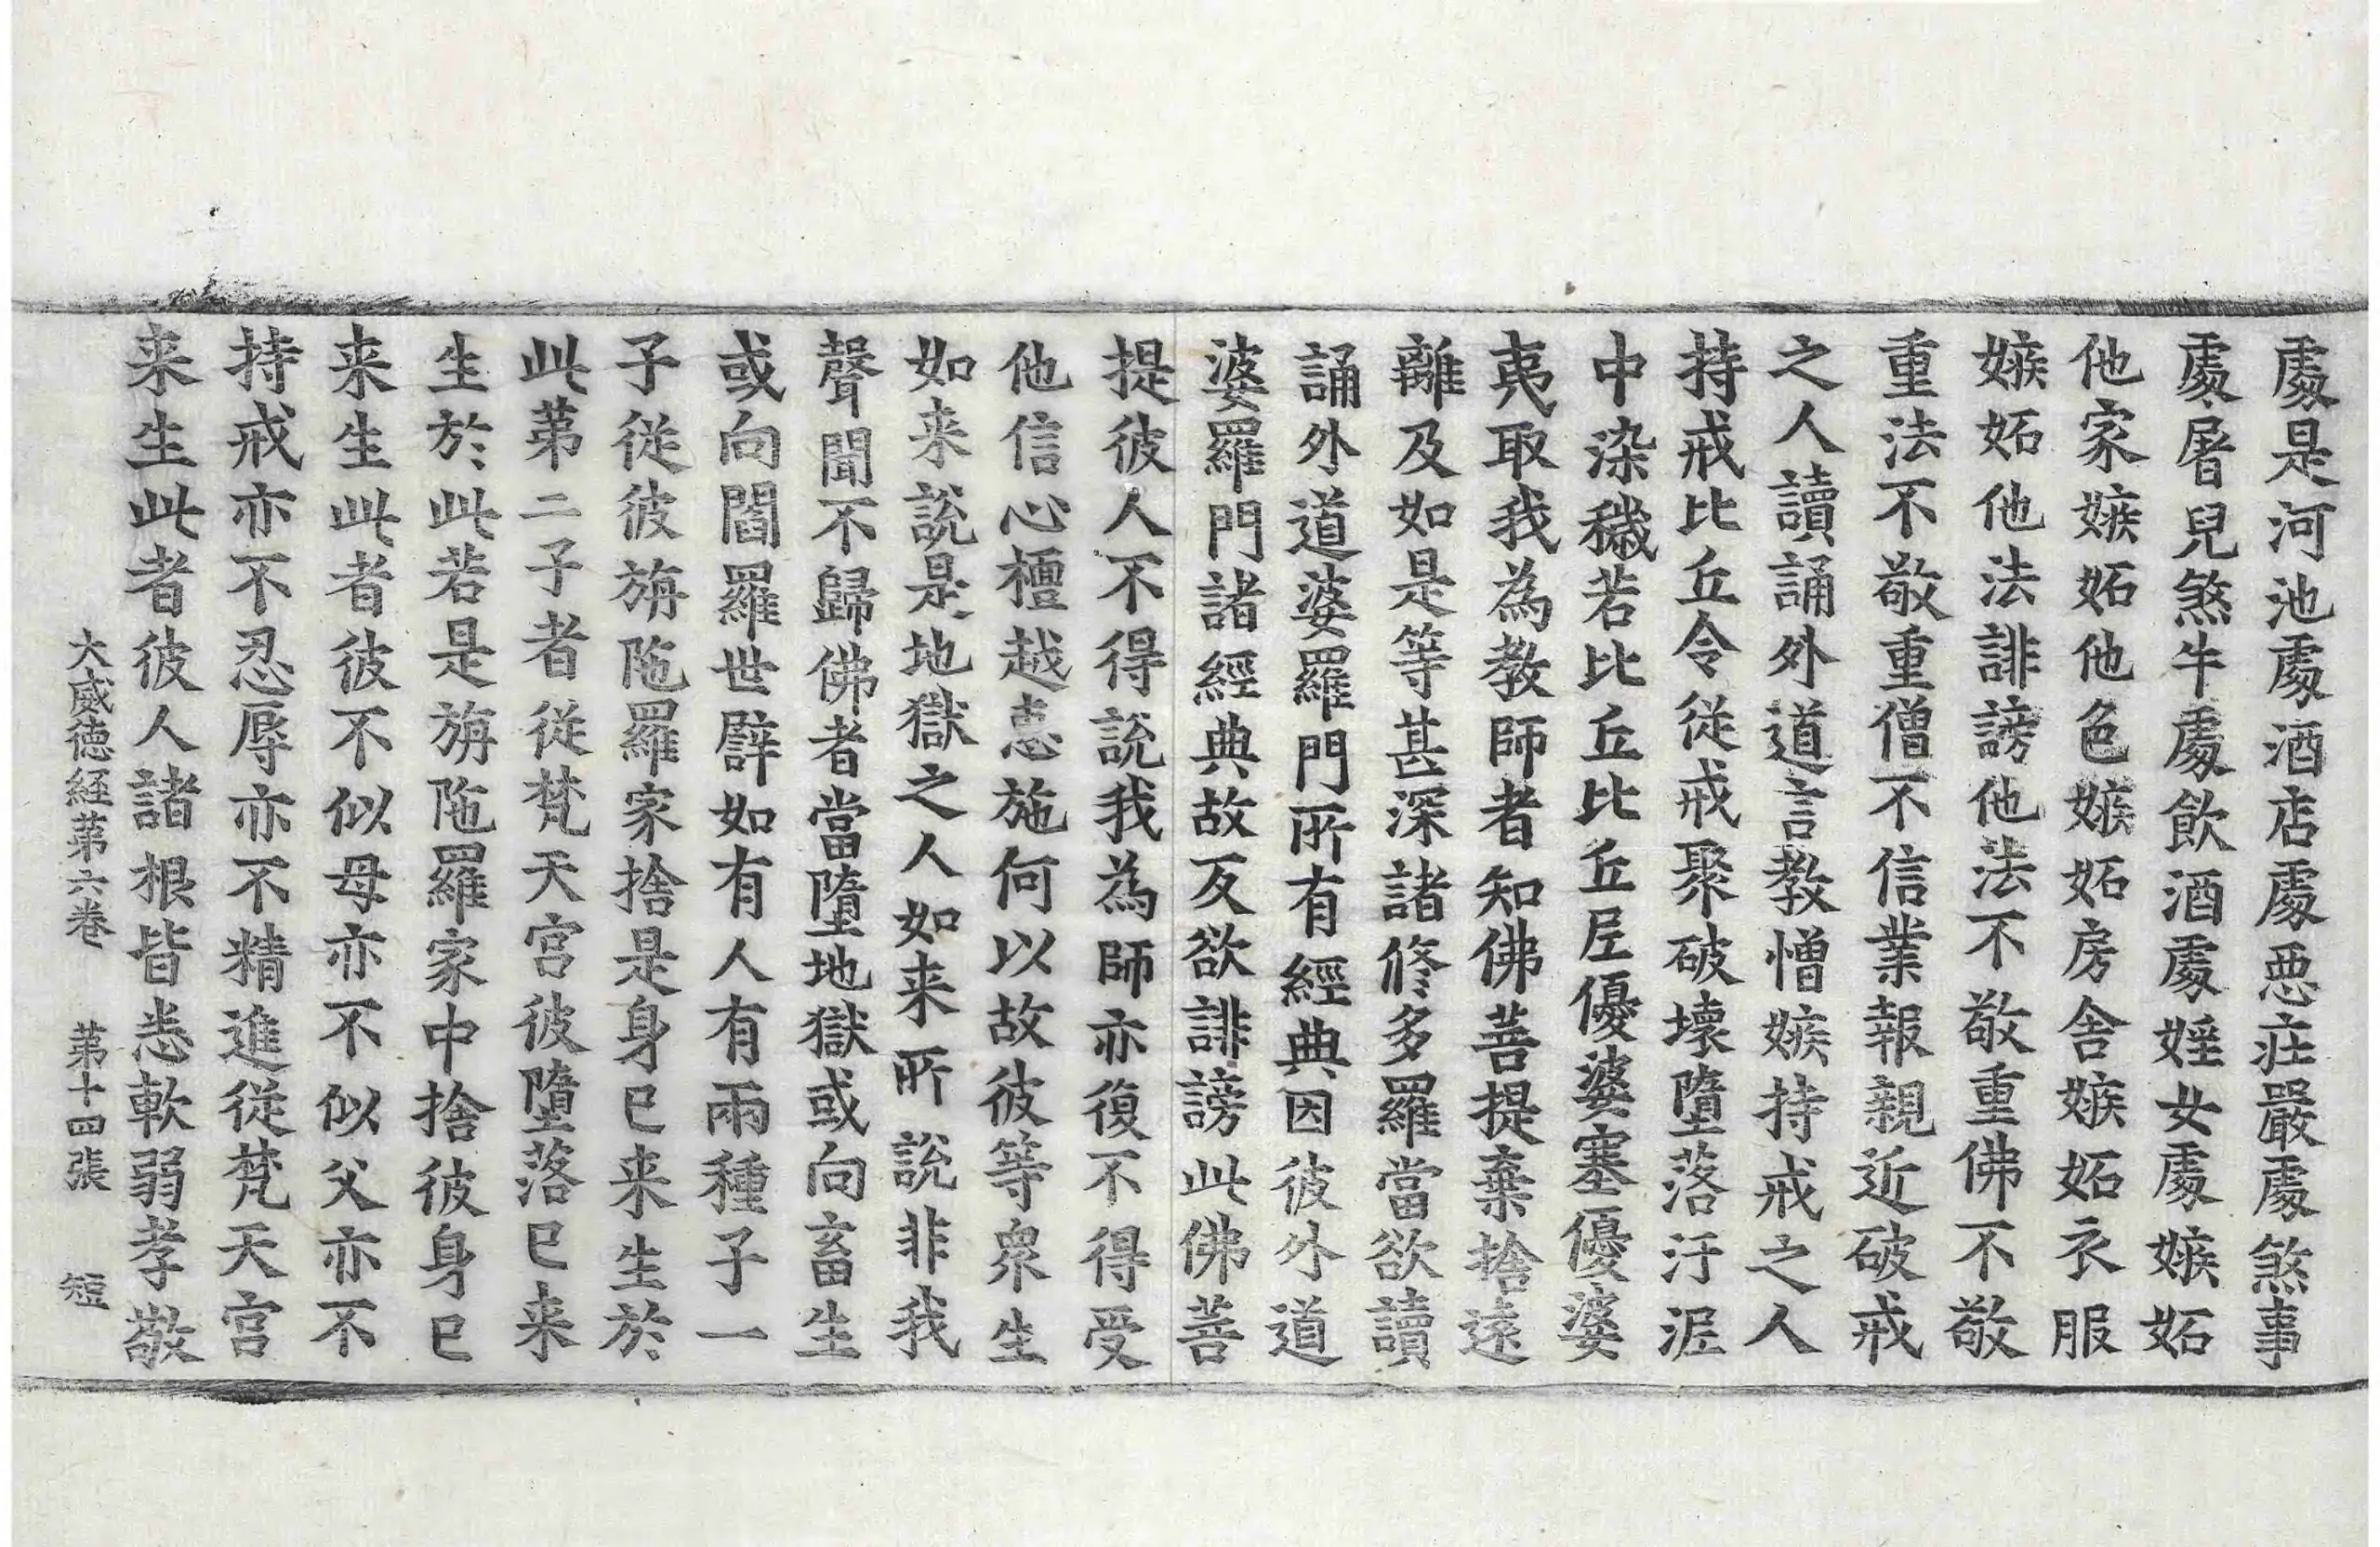 處是河池處酒店處惡莊嚴處煞事
處屠兒煞牛處飲酒處婬女處嫉妬
他家嫉妬他色嫉妬房舍嫉妬衣服
嫉妬他法誹謗他法不敬重佛不敬
重法不敬重僧不信業報親近破戒
之人讀誦外道言教憎嫉持戒之人
持戒比丘令從戒聚破壞墮落汙泥
中染穢若比丘比丘尼優婆塞優婆
夷取我為教師者知佛菩提棄捨遠
離及如是等甚深諸修多羅當欲讀
誦外道婆羅門所有經典因彼外道
婆羅門諸經典故反欲誹謗此佛菩
提彼人不得說我為師亦復不得受
他信心檀越恵施何以故彼等衆生
如来說是地獄之人如来所說非我
聲聞不歸佛者當墮地獄或向畜生
或向閻羅世辟如有人有兩種子一
子從彼旃陁羅家捨是身已来生於
此第二子者從梵天宮彼墮落已来
生於此若是旃陁羅家中捨彼身已
来生此者彼不似母亦不似父亦不
持戒亦不忍辱亦不精進從梵天宮
来生此者彼人諸根皆悉軟弱孝敬
大威徳経第六卷 第十四張 短